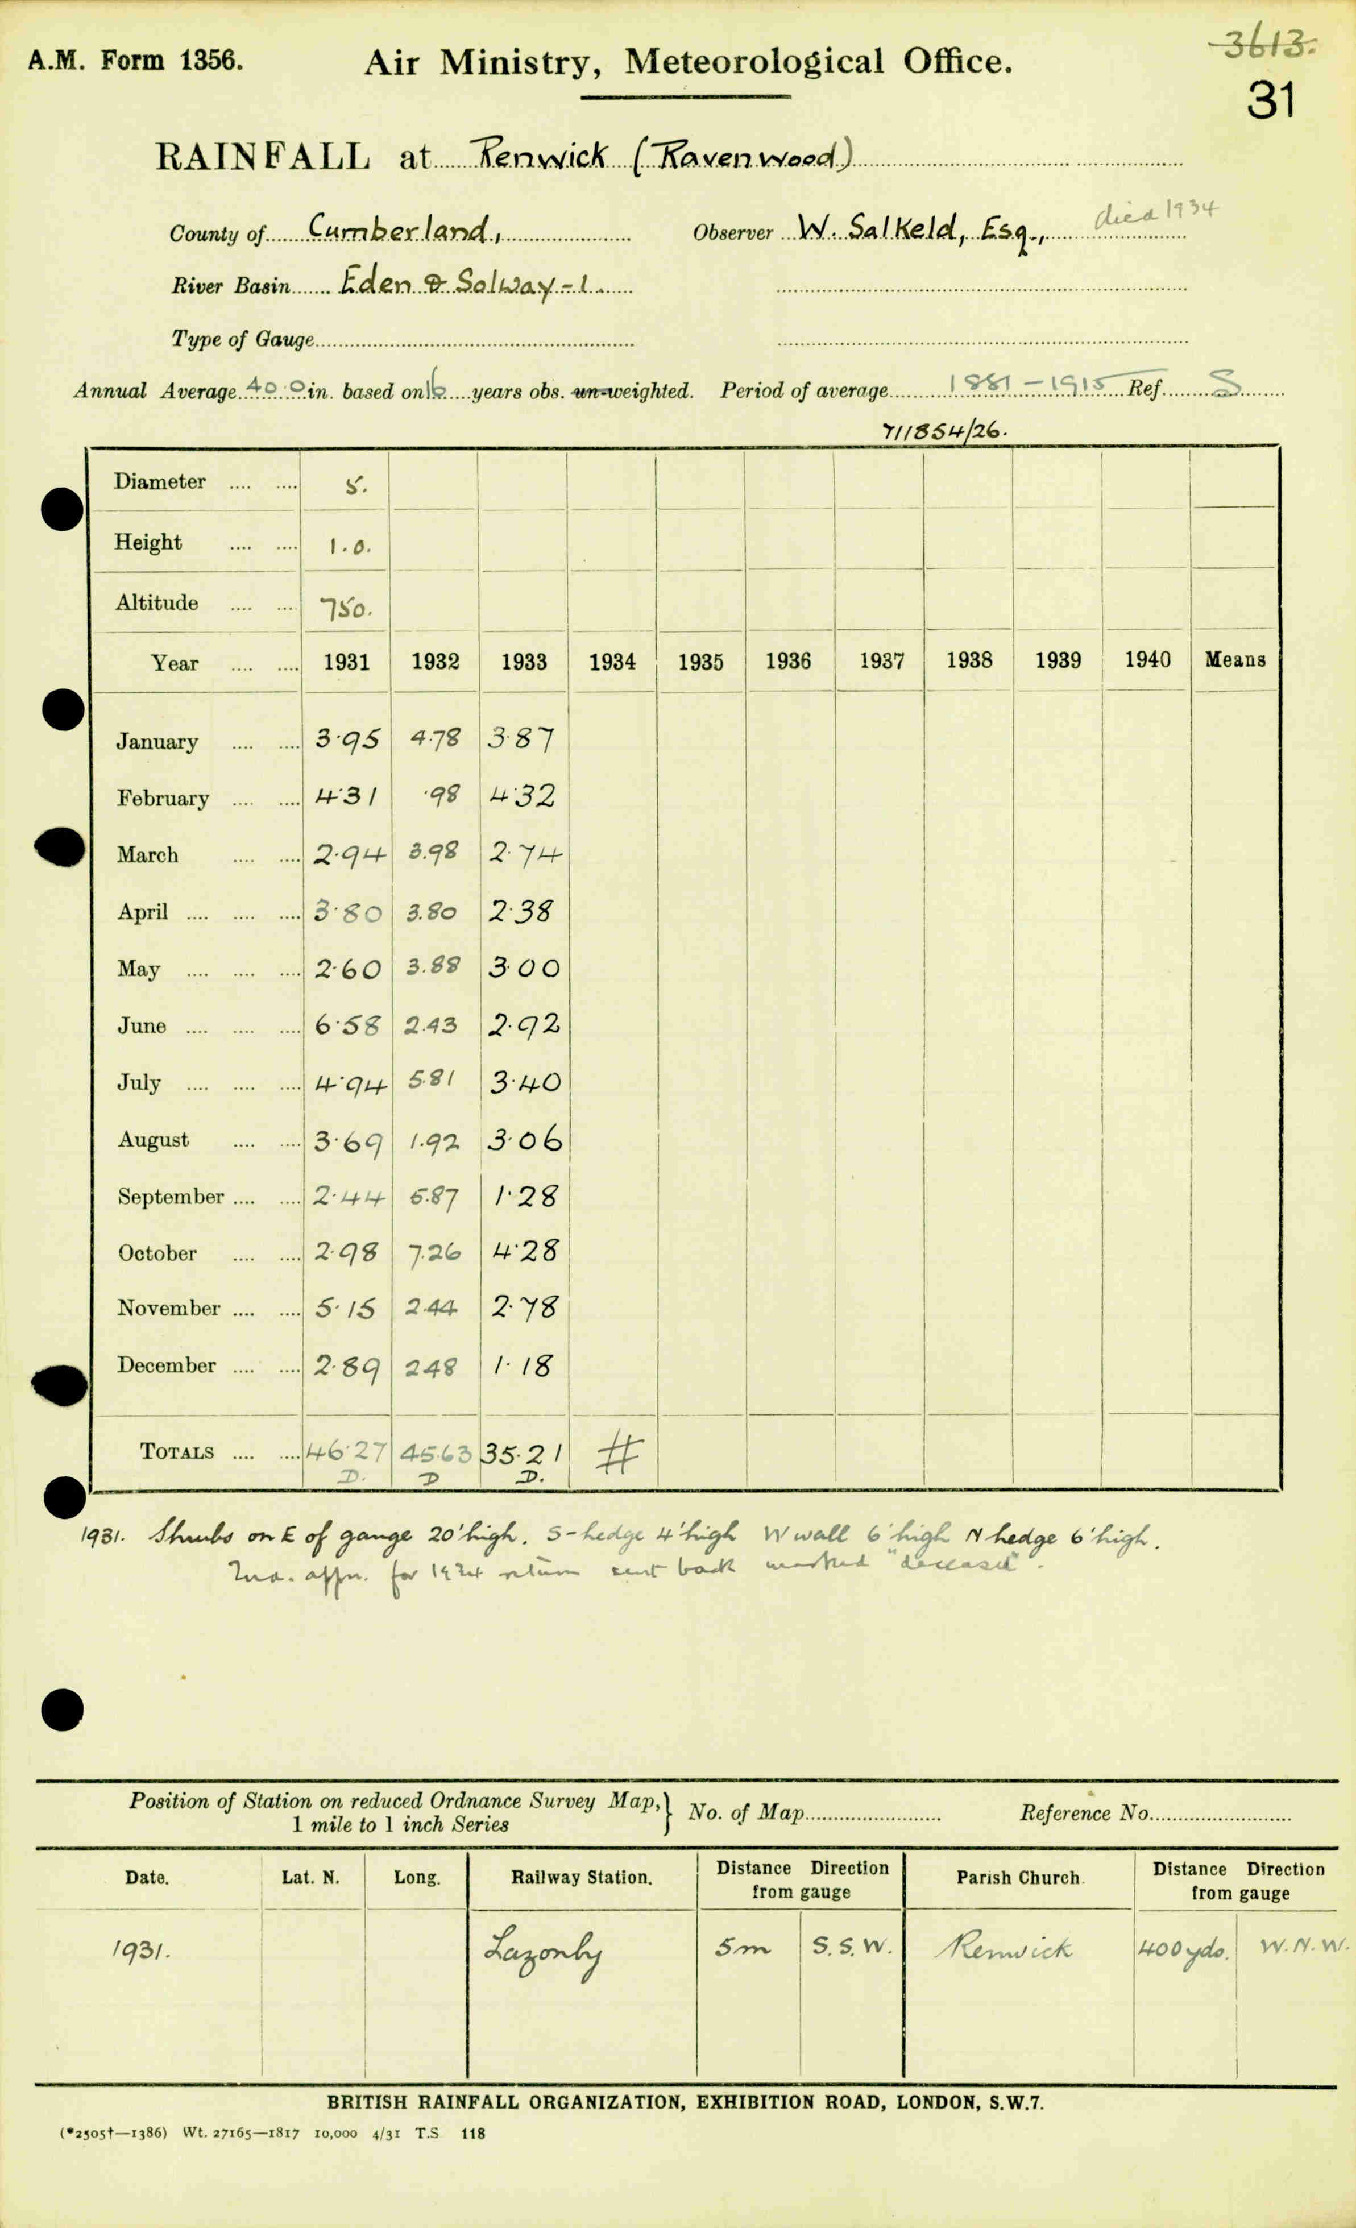 A.M. Form 1356. Air Ministry, Meteorological Office. 3613.
31
RAINFALL at Renwick (Ravenwood)
County of Cumberland, Observer W. Salkeld, Esq., died 1934
River Basin Eden & Solway-1
Type of Gauge
Annual Average 40.0 in. based on 16 years obs. un-weighted. Period of average 1881-1915 Ref. S
711854/26.
Diameter 5.
Height 1.0.
Altitude 750.
Year 1931 1932 1933 1934 1935 1936 1937 1938 1939 1940 Means
January 3.95 4.78 3.87
February 4.31 .98 4.32
March 2.94 3.98 2.74
April 3.80 3.80 2.38
May 2.60 3.88 3.00
June 6.58 2.43 2.92
July 4.94 5.81 3.40
August 3.69 1.92 3.06
September 2.44 5.87 1.28
October 2.98 7.26 4.28
November 5.15 2.44 2.78
December 2.89 2.48 1.18
TOTALS 46.27 45.63 35.21 #
D. D D.
1931. Shrubs on E of gauge 20' high. S-hedge 4' high W wall 6' high N hedge 6' high.
for 1934 return sent back marked "deceased".
Position of Station on reduced Ordnance Survey Map, } No. of Map Reference No.
1 mile to 1 inch Series
Date. Lat. N. Long. Railway Station. Distance Direction from gauge Parish Church Distance Direction from gauge
1931. Lazonby 5m S.S.W. Renwick 400 yds. W.N.W.
BRITISH RAINFALL ORGANIZATION, EXHIBITION ROAD, LONDON, S.W.7.
(*2505†—1386) Wt. 27165—1817 10,000 4/31 T.S 118